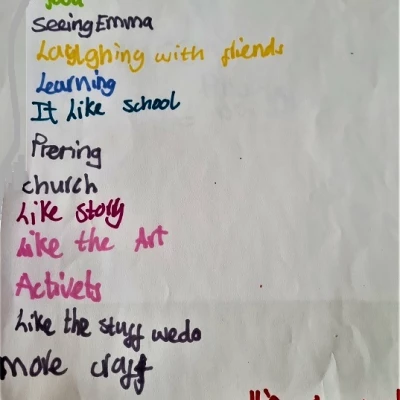 food
seeing Emma
Laughing with friends
Learning
It Like school
Prering
church
Like story
Like the Art
Activets
Like the stuff wedo
more craft